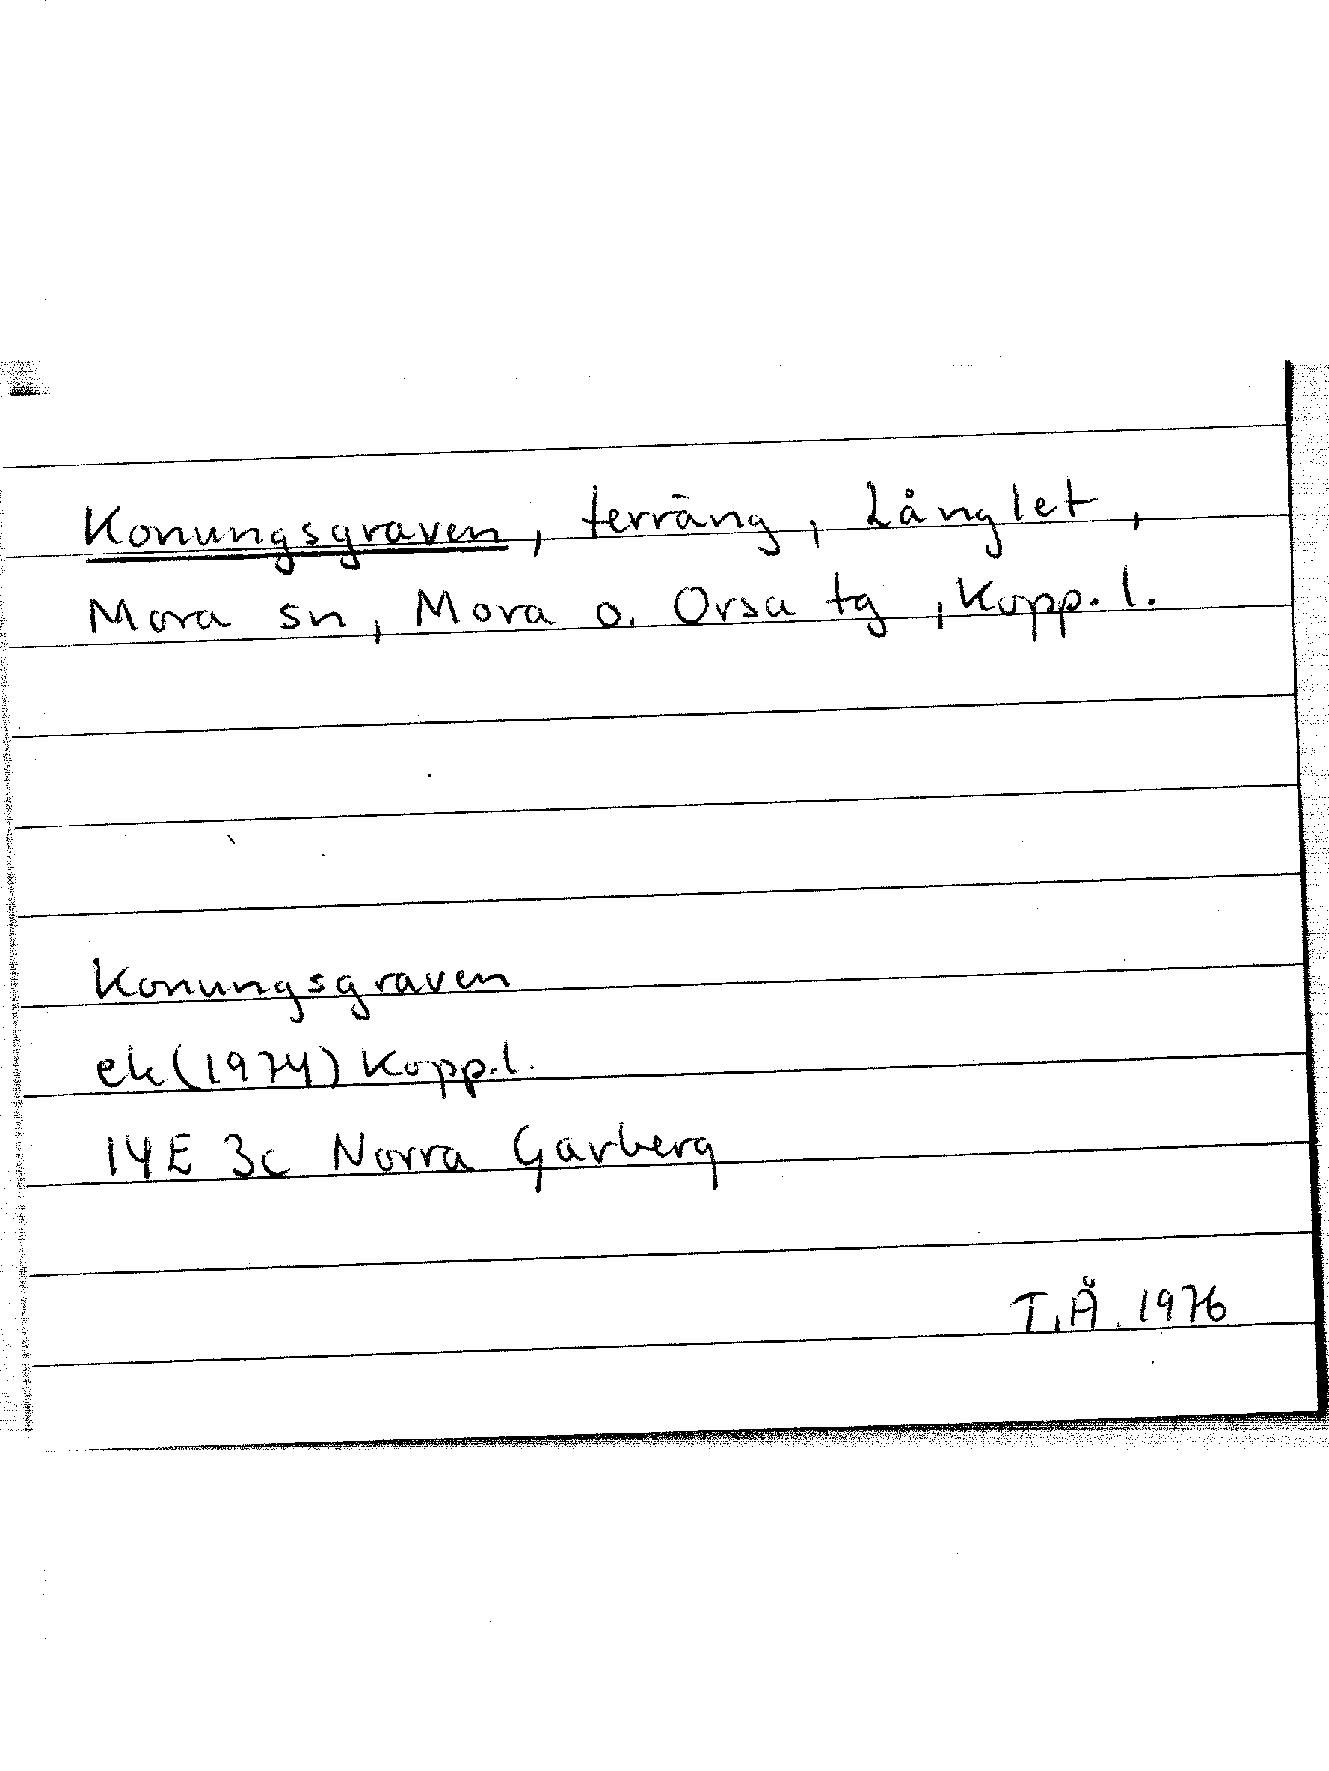 Konungsgraven, terräng, Långlet,
Mora sn, Mora o. Orsa tg, Kopp. l.
Konungsgraven
ek (1974) Kopp.l.
14E 3c Norra Garberg
T.Å. 1976